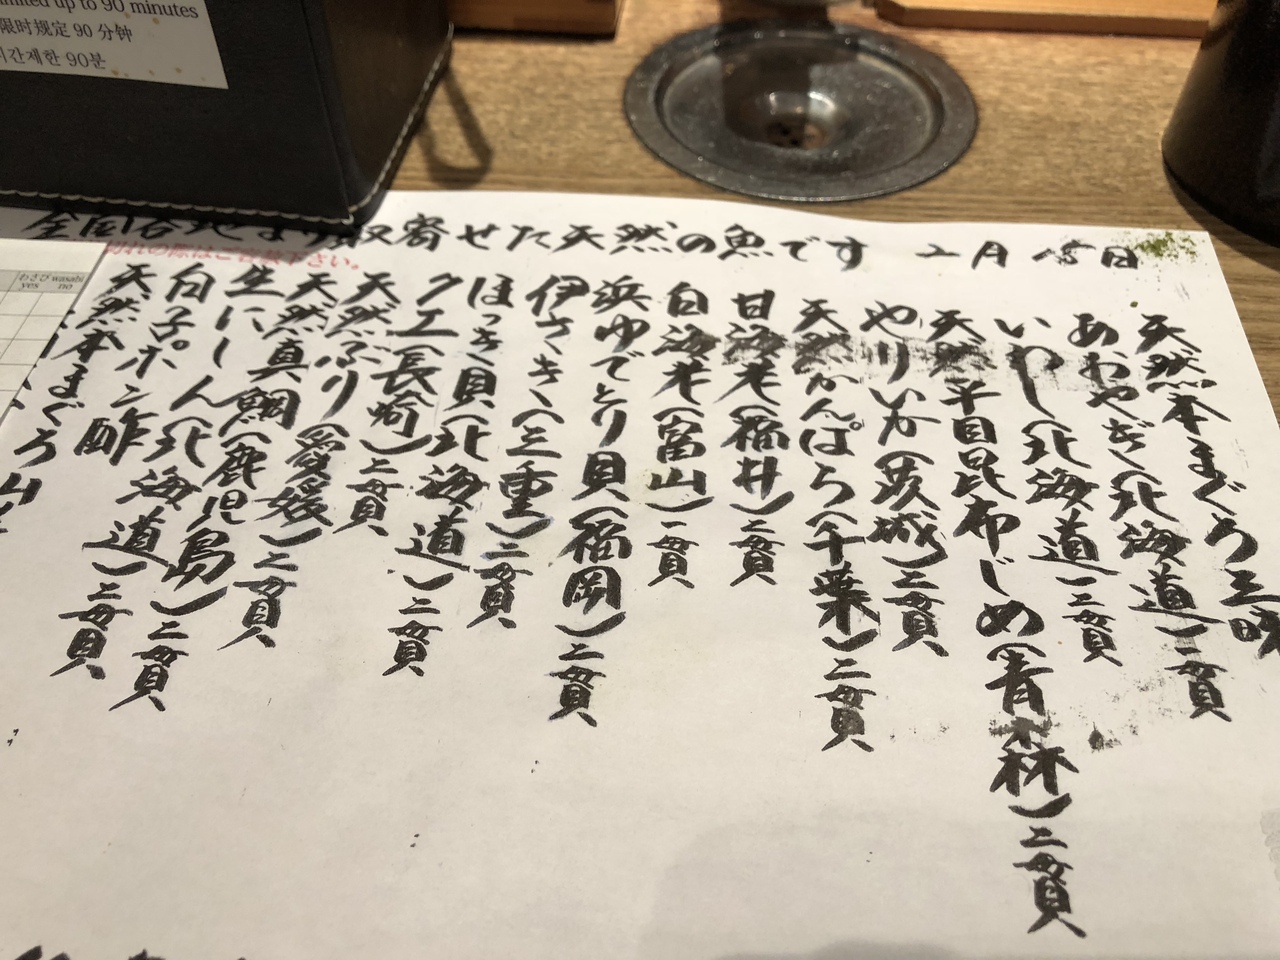 limited up to 90 minutes
限时规定 90 分钟
시간제한 90분
全国各地より取寄せた天然の魚です 二月 日
切れの際はご容赦下さい。
わさび wasabi
yes no
天然本まぐろ三昧
あおやぎ(北海道)二貫
いわし(北海道)二貫
天然平目昆布じめ(青森)二貫
やりいか(茨城)二貫
天然かんぱち(千葉)二貫
甘海老(福井)二貫
白海老(富山)一貫
浜ゆでとり貝(福岡)二貫
伊さき(三重)二貫
ほっき貝(北海道)二貫
クエ(長崎)二貫
天然ぶり(愛媛)二貫
天然真鯛(鹿児島)二貫
生にしん(北海道)二貫
白子ポン酢
天然本まぐろ山